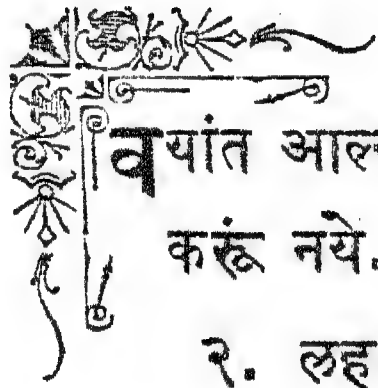 वयांत आल
करूं नये.
२. लह